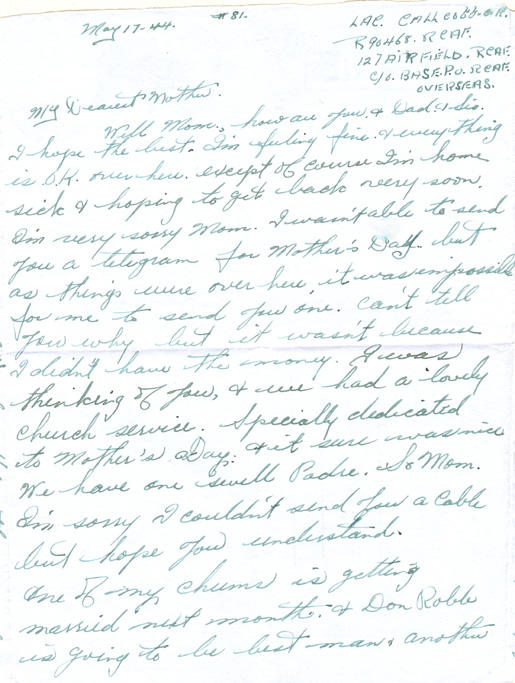 May 17-44. #81.
LAC. CALLCOTT. G.R.
R90468. R.C.A.F.
127 AIRFIELD. RCAF.
C/O. BASE. P.O. RCAF.
OVERSEAS.
My Dearest Mother.
Well Mom, how are you, & Dad. & Sis.
I hope the best. I'm feeling fine. & everything
is O.K. over here. except of course I'm home
sick & hoping to get back very soon.
I'm very sorry Mom. I wasn't able to send
you a telegram for Mother's Day. but
as things were over here, it was impossible
for me to send you one. Can't tell
you why but it wasn't because
I didn't have the money. I was
thinking of you, & we had a lovely
church service. Specially dedicated
to Mother's Day. & it sure was nice
We have one swell Padre. So Mom.
I'm sorry I couldn't send you a cable
but hope you understand.
One of my chums is getting
married next month. & Don Robb
is going to be best man & another